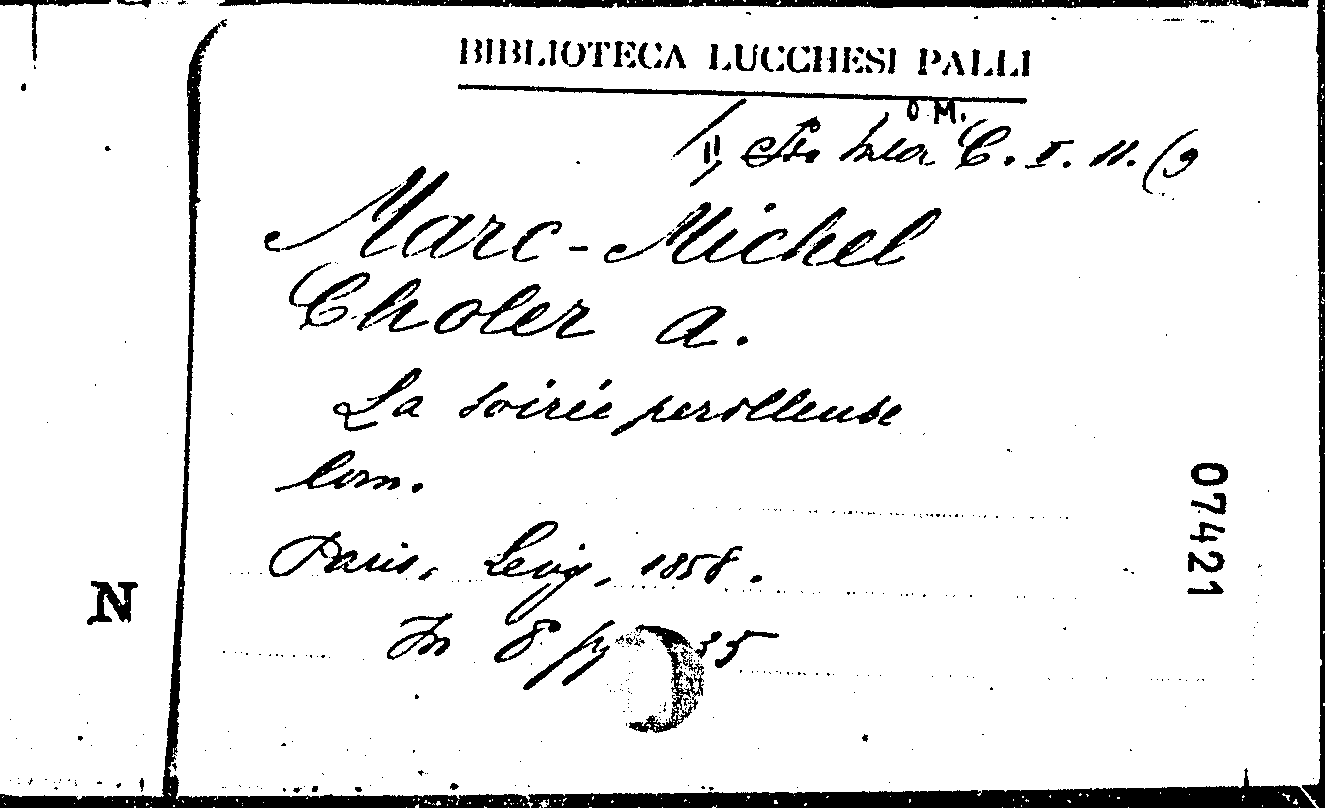 BIBLIOTECA LUCCHESI PALLI
O M.
C. I. 11. (9
Marc-Michel
Choler A.
La soirée perilleuse
Com.
Paris, Levy, 1858.
In 8 pg 35
07421
N